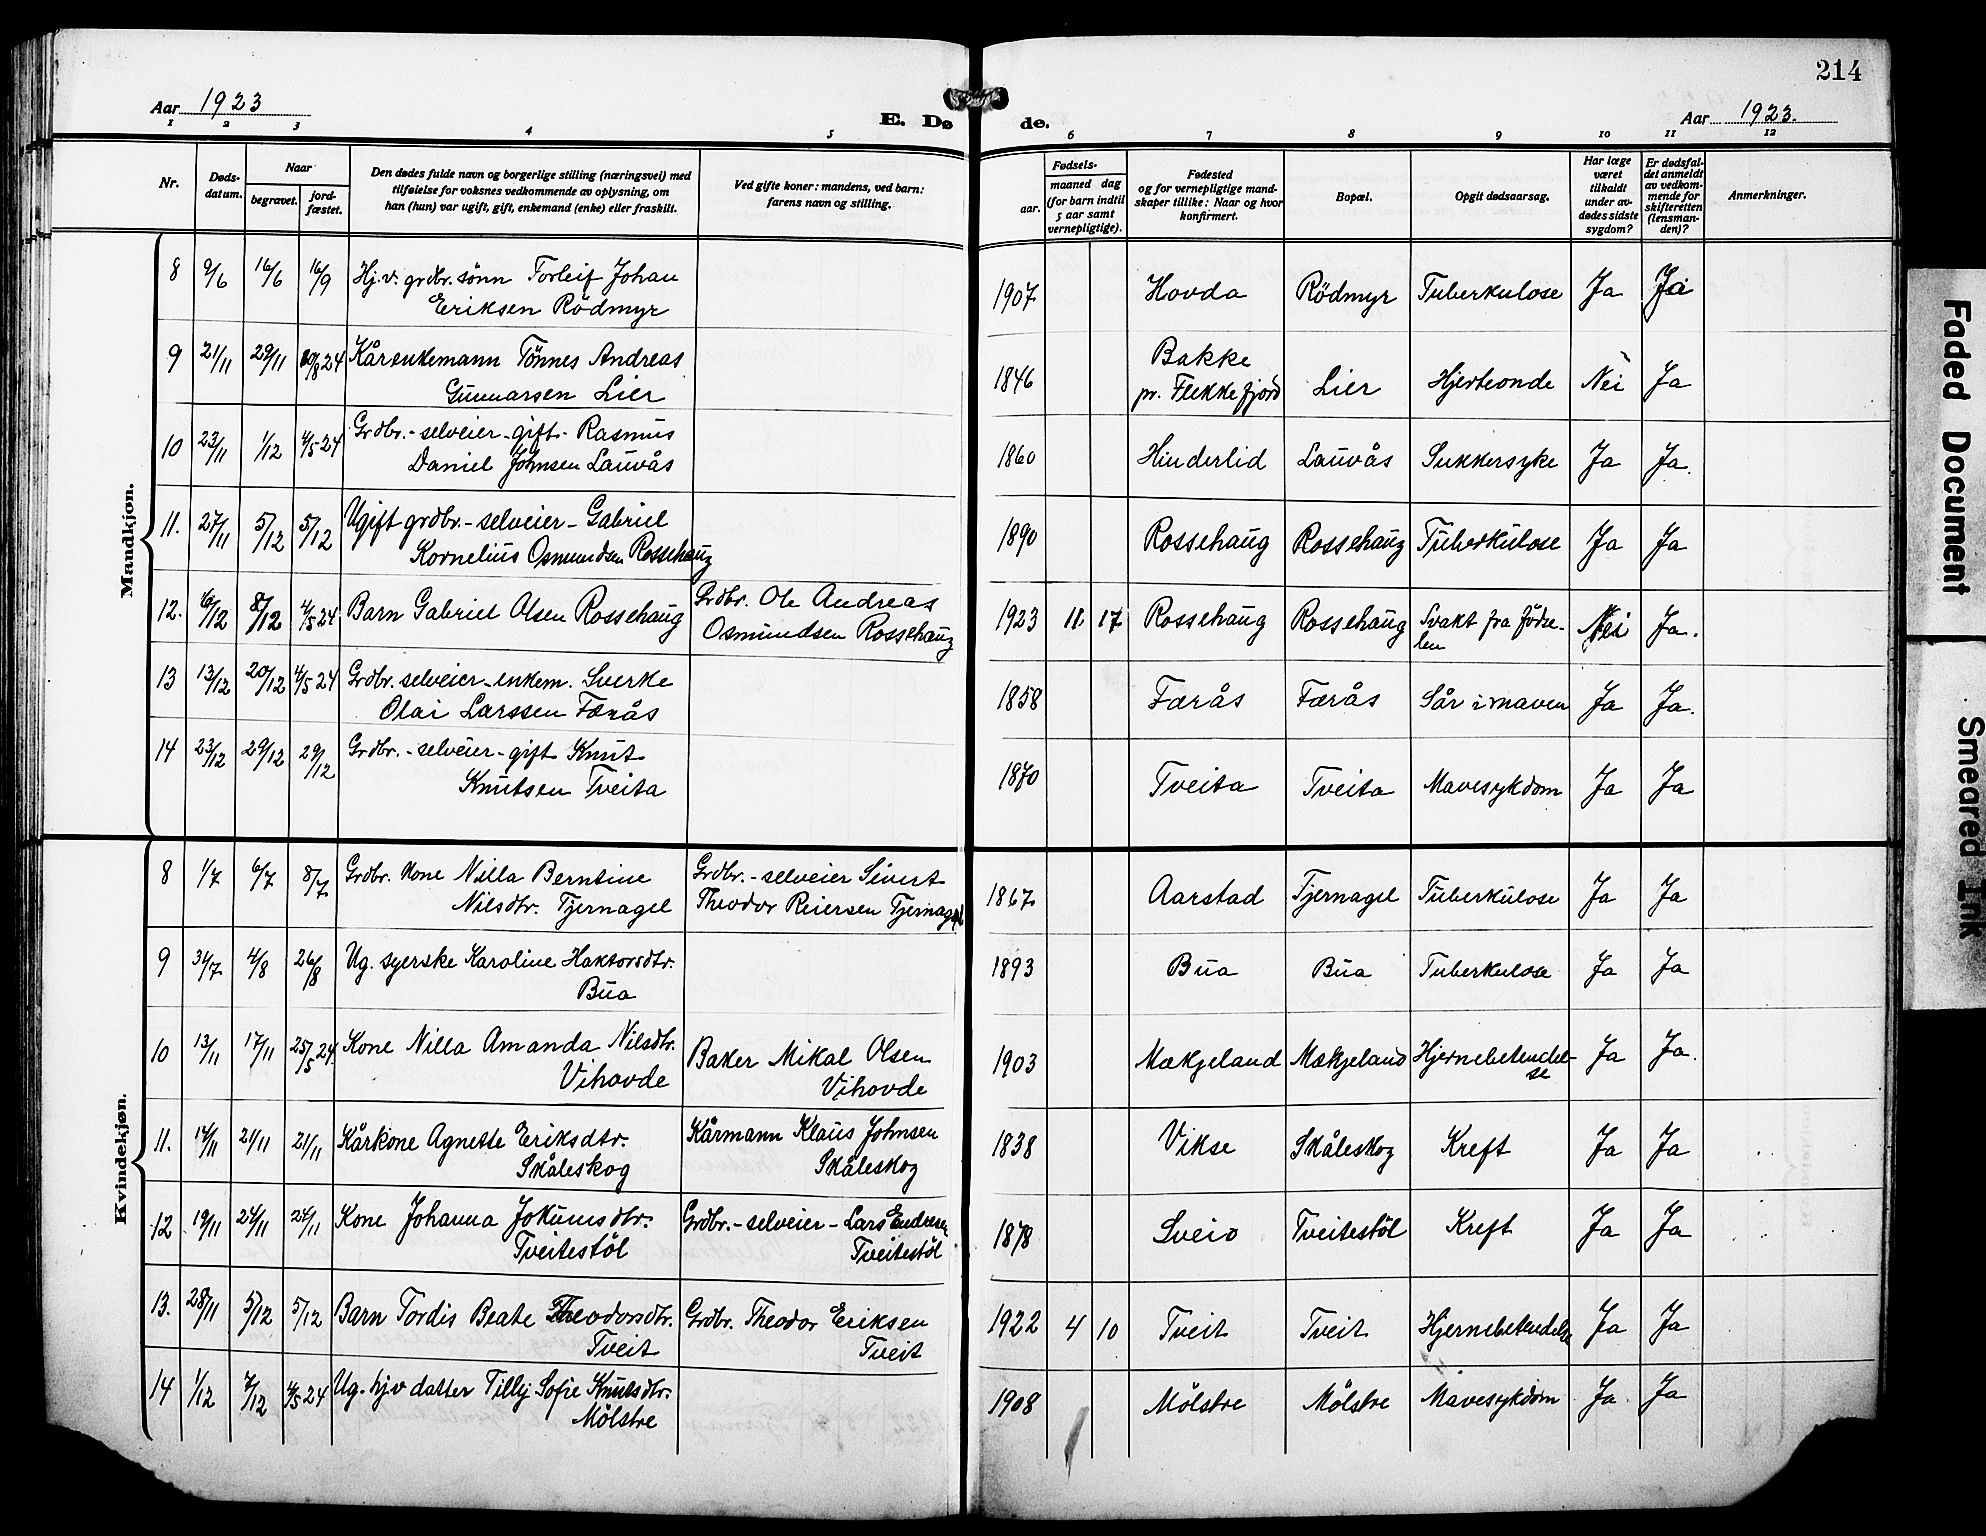 214
Aar 1923
E. Dø de.
Aar 1923.
1 2 3 4 5 6 7 8 9 10 11 12
Nr.
Døds-
datum.
Naar
begravet.
jord-
fæstet.
Den dødes fulde navn og borgerlige stilling (næringsvei) med
tilføielse for voksnes vedkommende av oplysning, om
han (hun) var ugift, gift, enkemand (enke) eller fraskilt.
Ved gifte koner: mandens, ved barn:
farens navn og stilling.
Fødsels-
aar.
maaned dag
(for barn indtil
5 aar samt
vernepligtige).
Fødested
og for vernepligtige mand-
skaper tillike: Naar og hvor
konfirmert.
Bopæl.
Opgit dødsaarsag.
Har læge
været
tilkaldt
under av-
dødes sidste
sygdom?
Er dødsfal-
det anmeldt
av vedkom-
mende for
skifteretten
(lensman-
den)?
Anmerkninger.
Mandkjøn.
8 9/6 16/6 16/9 Hj.v. grdbr. sönn Torleif Johan
Eriksen Rödmyr
1907 Hovda Rödmyr Tuberkulose Ja Ja
9 21/11 29/11 10/8 24 Kårenkemann Tönnes Andreas
Gunnarsen Lier
1846 Bakke
pr. Flekkefjord Lier Hjerteonde Nei Ja
10 23/11 1/12 4/5-24 Grdbr.-selveier-gift-Rasmus
Daniel Johnsen Lauvås
1860 Hinderlid Lauvås Sukkersyke Ja Ja.
11. 27/11 5/12 5/12 Ugift grdbr.-selveier-Gabriel
Kornelius Osmundsen Rossehaug
1890 Rossehaug Rossehaug Tuberkulose Ja Ja
12. 6/12 8/12 4/5 24 Barn Gabriel Olsen Rossehaug Grdbr. Ole Andreas
Osmundsen Rossehaug
1923 11 17 Rossehaug Rossehaug Svakt fra födse-
len Nei Ja.
13 13/12 20/12 4/5 24 Grdbr. selveier-enkem. Sverke
Olai Larssen Færås
1858 Færås Færås Sår i maven Ja Ja.
14 23/12 29/12 29/12 Grdbr.-selveier-gift Knut
Knutsen Tveita
1870 Tveita Tveita Mavesykdom Ja Ja
Kvindekjøn.
8 1/7 6/7 8/7 Grdbr. kone Nilla Berntine
Nilsdtr. Tjernagel
Grdbr.-selveier Sivert
Theodor Reiersen Tjernagel
1867 Aarstad Tjernagel Tuberkulose Ja Ja
9 31/7 4/8 26/8 Ug. syerske Karoline Haktorsdtr.
Bua
1893 Bua Bua Tuberkulose Ja Ja
10 13/11 17/11 25/5 24 Kone Nilla Amanda Nilsdtr.
Vihovde
Baker Mikal Olsen
Vihovde
1903 Mækjeland Mækjeland Hjernebetendel-
se Ja Ja.
11. 14/11 21/11 21/11 Kårkone Agnette Eriksdtr.
Skåleskog
Kårmann Klaus Johnsen
Skåleskog
1838 Vikse Skåleskog Kreft Ja Ja
12 19/11 24/11 24/11 Kone Johanna Jokumsdtr.
Tveitestöl
Grdbr.-selveier-Lars Endresen
Tveitestöl
1878 Sveio Tveitestöl Kreft Ja Ja
13. 28/11 5/12 5/12 Barn Tordis Beate Theodorsdtr.
Tveit
Grdbr. Theodor Eriksen
Tveit
1922 4 10 Tveit Tveit Hjernebetendelse Ja Ja
14 1/12 7/12 4/5 24 Ug. hjv datter Tilly Sofie Knutsdtr.
Mölstre
1908 Mölstre Mölstre Mavesykdom Ja Ja
Faded Document
Smeared Ink